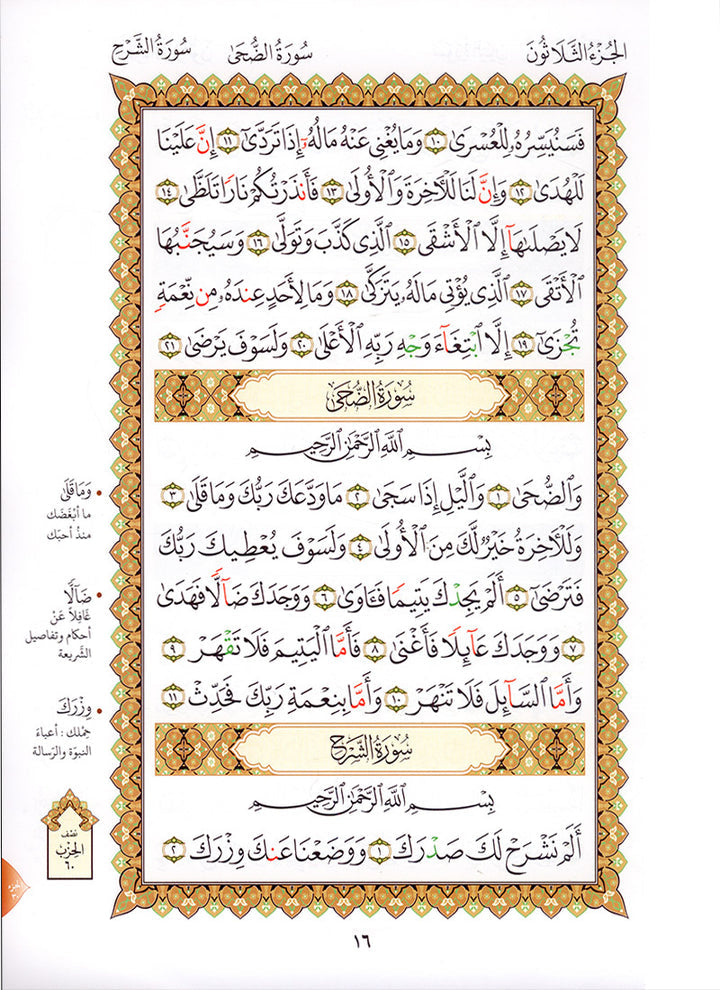 الجُزْءُ الثَّلَاثُونَ
سُورَةُ الضُّحَىٰ
سُورَةُ الشَّرْحِ
فَسَنُيَسِّرُهُۥ لِلْعُسْرَىٰ ١٠ وَمَا يُغْنِى عَنْهُ مَالُهُۥٓ إِذَا تَرَدَّىٰٓ ١١ إِنَّ عَلَيْنَا
لَلْهُدَىٰ ١٢ وَإِنَّ لَنَا لَلْـَٔاخِرَةَ وَٱلْأُولَىٰ ١٣ فَأَنذَرْتُكُمْ نَارًا تَلَظَّىٰ ١٤
لَا يَصْلَىٰهَآ إِلَّا ٱلْأَشْقَى ١٥ ٱلَّذِى كَذَّبَ وَتَوَلَّىٰ ١٦ وَسَيُجَنَّبُهَا
ٱلْأَتْقَى ١٧ ٱلَّذِى يُؤْتِى مَالَهُۥ يَتَزَكَّىٰ ١٨ وَمَا لِأَحَدٍ عِندَهُۥ مِن نِّعْمَةٍ
تُجْزَىٰٓ ١٩ إِلَّا ٱبْتِغَآءَ وَجْهِ رَبِّهِ ٱلْأَعْلَىٰ ٢٠ وَلَسَوْفَ يَرْضَىٰ ٢١
سُورَةُ الضُّحَىٰ
بِسْمِ ٱللَّهِ ٱلرَّحْمَٰنِ ٱلرَّحِيمِ
وَٱلضُّحَىٰ ١ وَٱلَّيْلِ إِذَا سَجَىٰ ٢ مَا وَدَّعَكَ رَبُّكَ وَمَا قَلَىٰ ٣
وَلَلْـَٔاخِرَةُ خَيْرٌ لَّكَ مِنَ ٱلْأُولَىٰ ٤ وَلَسَوْفَ يُعْطِيكَ رَبُّكَ
فَتَرْضَىٰٓ ٥ أَلَمْ يَجِدْكَ يَتِيمًا فَـَٔاوَىٰ ٦ وَوَجَدَكَ ضَآلًّا فَهَدَىٰ
٧ وَوَجَدَكَ عَآئِلًا فَأَغْنَىٰ ٨ فَأَمَّا ٱلْيَتِيمَ فَلَا تَقْهَرْ ٩
وَأَمَّا ٱلسَّآئِلَ فَلَا تَنْهَرْ ١٠ وَأَمَّا بِنِعْمَةِ رَبِّكَ فَحَدِّثْ ١١
سُورَةُ الشَّرْحِ
بِسْمِ ٱللَّهِ ٱلرَّحْمَٰنِ ٱلرَّحِيمِ
أَلَمْ نَشْرَحْ لَكَ صَدْرَكَ ١ وَوَضَعْنَا عَنكَ وِزْرَكَ ٢
• وَمَا قَلَىٰ
ما أبْغَضَكَ
منذُ أحبّكَ
• ضَآلًّا
غَافِلاً عَنْ
أحكام وتفاصيل
الشّريعة
• وِزْرَكَ
حِمْلَكَ : أعباءَ
النبوّة والرّسالة
نصف
الحِزْب
٦٠
١٦